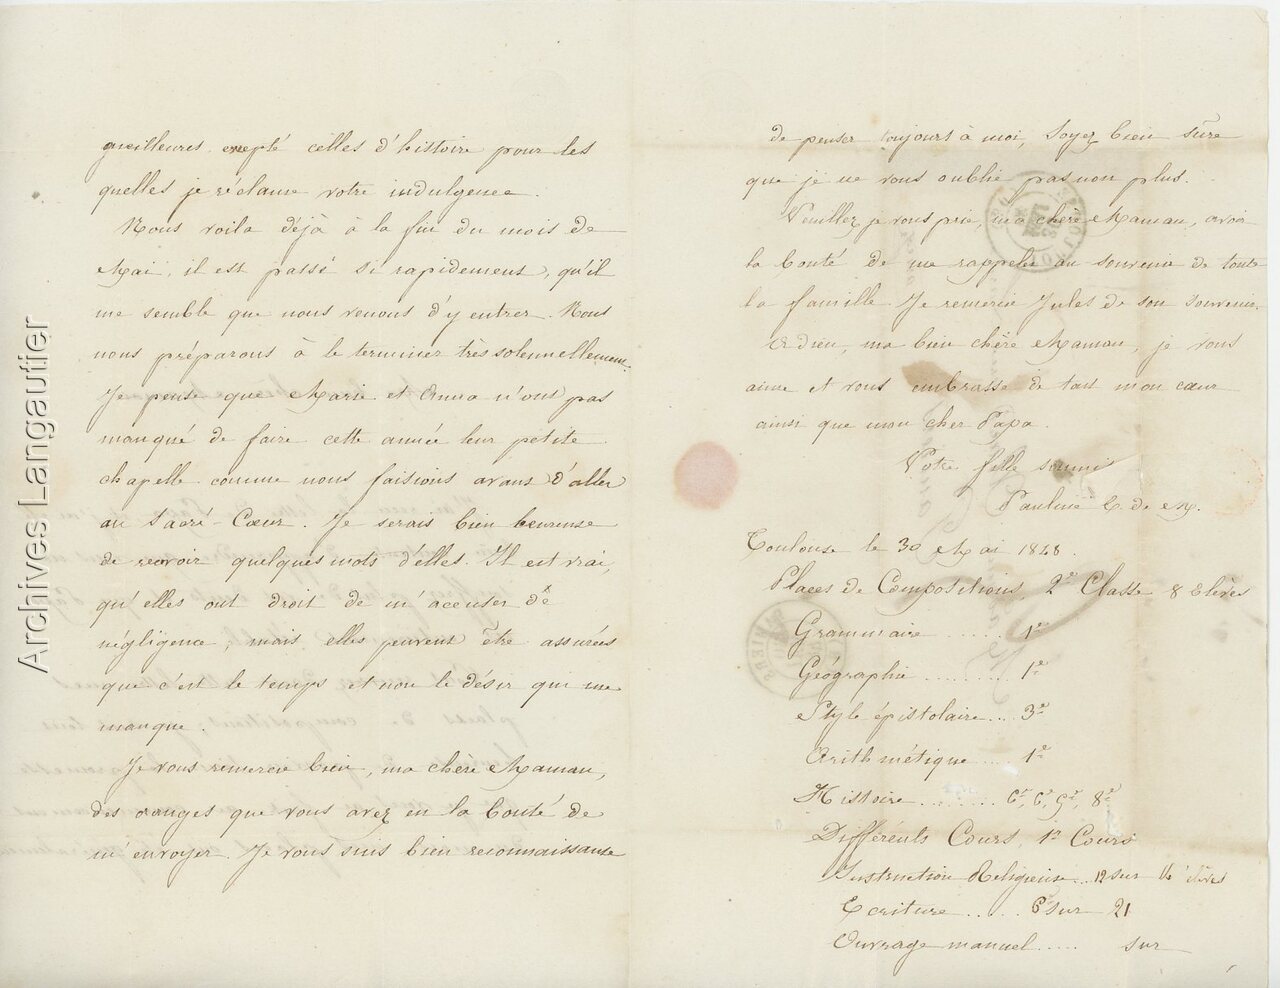 meilleures, exepté celles d'histoire pour les
quelles je réclame votre indulgence.
Nous voila déjà à la fin du mois de
Mai, il est passé si rapidement, qu'il
me semble que nous venons d'y entrer. Nous
nous préparons à le terminer très solennellement.
Je pense que Marie et Anna n'ont pas
manqué de faire cette année leur petite
chapelle comme nous faisions avant d'aller
au Sacré-Cœur. Je serais bien heureuse
de recevoir quelques mots d'elles. Il est vrai,
qu'elles ont droit de m'accuser de
négligence, mais elles peuvent être assurées
que c'est le temps et non le désir qui me
manque.
Je vous remercie bien, ma chère Maman,
des oranges que vous avez eu la bonté de
m'envoyer. Je vous suis bien reconnaissante
de penser toujours à moi, soyez bien sûre
que je ne vous oublie pas non plus.
Veuillez je vous prie, ma chère Maman, avoir
la bonté de me rappeler au souvenir de toute
la famille. Je remercie Jules de son souvenir.
Adieu, ma bien chère Maman, je vous
aime et vous embrasse de tout mon cœur
ainsi que mon cher Papa.
Votre fille soumise
Pauline C. de M.
Toulouse le 30 Mai 1848.
Places de Compositions, 2e Classe 8 Elèves
Grammaire ...... 1re
Géographie ......... 1re
Style épistolaire ... 3e
Arithmétique .... 1re
Histoire ........ 6e, 6e, 5e, 8e
Différents Cours, 1r Cours
Instruction Religieuse .. 12 sur 14 élèves
Ecriture ..... 6e sur 21
Ouvrage manuel ..... sur
Archives Langautier